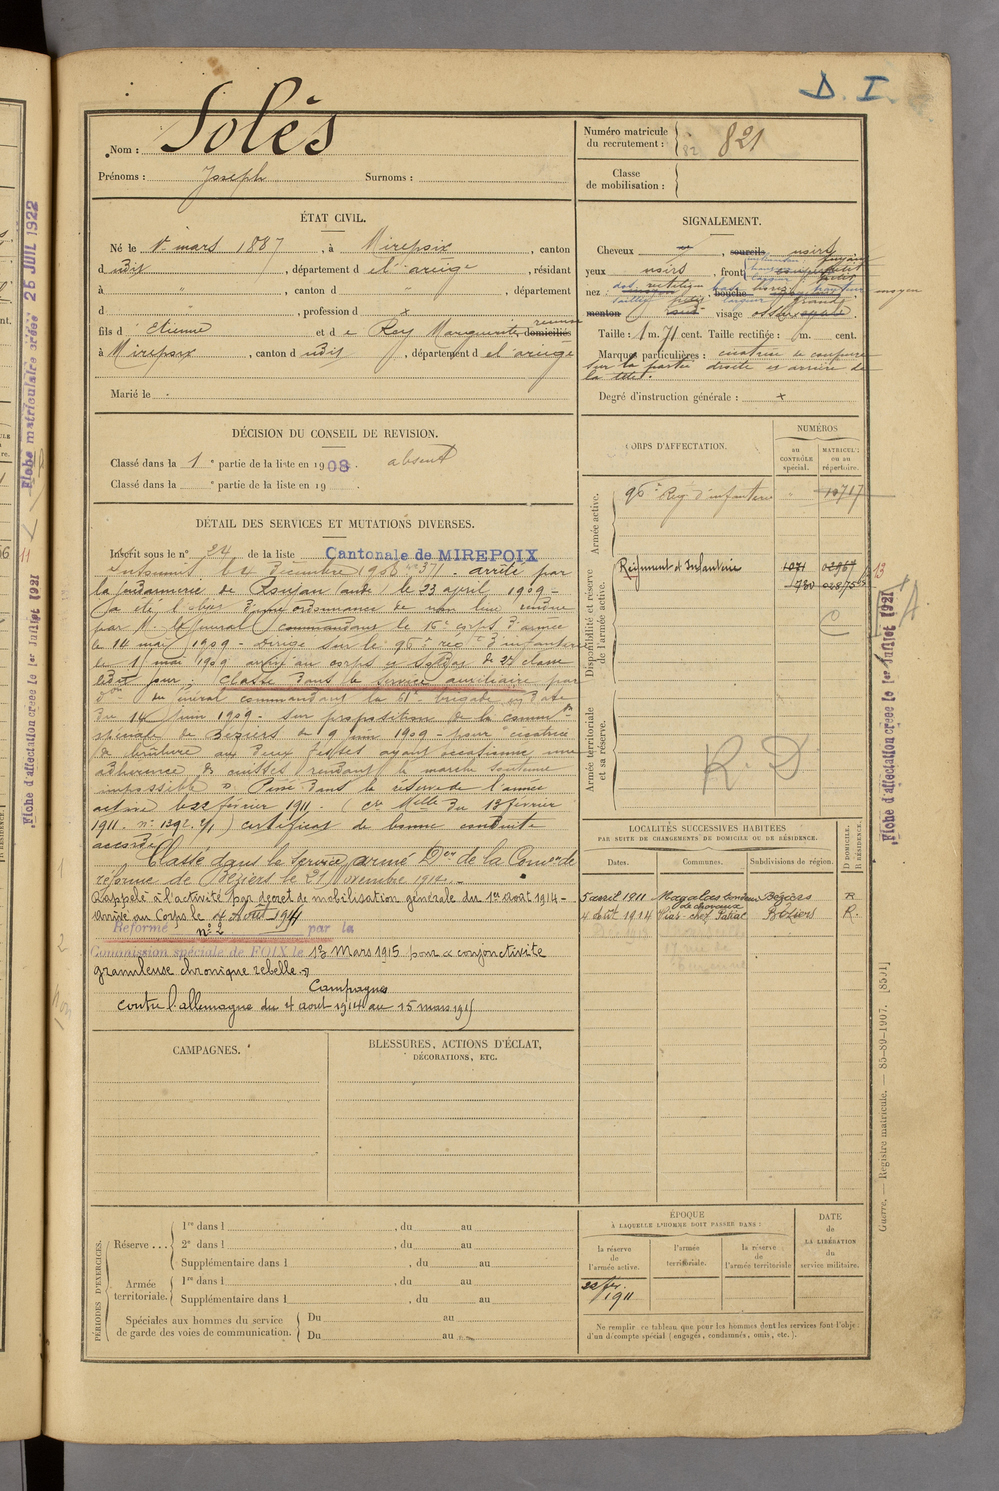 D. I.
Nom : Solés
Prénoms : Joseph Surnoms :
Numéro matricule du recrutement : 821
Classe de mobilisation :
ÉTAT CIVIL.
Né le 1er mars 1887, à Mirepoix, canton
dudit, département de l'ariège, résidant
à " , canton d " , département
d , profession d x
fils d'Etienne et de Rey Marguerite, domiciliés
à Mirepoix, canton dudit, département de l'ariège
Marié le
SIGNALEMENT.
Cheveux , sourcils noirs
yeux noirs , front
nez : dos rectiligne base , bouche moyen
menton visage
Taille : 1 m. 71 cent. Taille rectifiée : m. cent.
Marques particulières : cicatrice de coupure
sur la partie droite et arrière de
la tête.
Degré d'instruction générale : x
DÉCISION DU CONSEIL DE REVISION.
Classé dans la 1 e partie de la liste en 1908. absent
Classé dans la e partie de la liste en 19 .
CORPS D'AFFECTATION.
NUMÉROS
au CONTRÔLE spécial.
MATRICULE ou au répertoire.
Armée active.
96e Rég. d'infanterie 10717
Disponibilité et réserve de l'armée active.
Régiment d'Infanterie 1071
730
Armée territoriale et sa réserve.
R. D
DÉTAIL DES SERVICES ET MUTATIONS DIVERSES.
Inscrit sous le n° 24 de la liste Cantonale de MIREPOIX
Insoumis le 4 décembre 1908 n° 371. arrêté par
la gendarmerie de (aude) le 23 avril 1909 -
a été l'objet d'une ordonnance de non lieu rendue
par M. le Général commandant le 16e corps d'armée
le 14 mai 1909 - Dirigé sur le 96e rég.t d'infanterie
le mai 1909 arrivé au corps et soldat de 2e classe
ledit jour. Classé dans le service auxiliaire par
du Général commandant la 61e brigade en date
du 14 juin 1909 - sur proposition de la comm.on
spéciale de Béziers du 9 juin 1909 - pour "cicatrice
de brûlure aux deux fesses ayant occasionné une
adhérence de cuisses rendant la marche soutenue
impossible". Passé dans la réserve de l'armée
active le 22 février 1911. (Cre Melle du 13 février
1911. n° 1392. 2/1) certificat de bonne conduite
accordé
Classé dans le Service armé Don de la Comon de
réforme de Béziers le 21 novembre 1914.
Rappelé à l'activité par décret de mobilisation générale du 1er août 1914 -
arrivé au Corps le 4 Août 1914
Réformé n° 2 par la
Commission spéciale de FOIX le 13 Mars 1915 pour "conjonctivite
granuleuse chronique rebelle."
Campagnes
contre l'allemagne du 4 août 1914 au 15 mars 1915
LOCALITÉS SUCCESSIVES HABITÉES
PAR SUITE DE CHANGEMENTS DE DOMICILE OU DE RÉSIDENCE.
Dates. Communes. Subdivisions de région. D DOMICILE. R RÉSIDENCE.
5 avril 1911 Magalas tondeur de chevaux Béziers R
4 août 1914 Vias chez Béziers R.
CAMPAGNES.
BLESSURES, ACTIONS D'ÉCLAT,
DÉCORATIONS, ETC.
PÉRIODES D'EXERCICES.
Réserve ... 1re dans l , du au
2e dans l , du au
Supplémentaire dans l , du au
Armée territoriale. 1re dans l , du au
Supplémentaire dans l , du au
Spéciales aux hommes du service
de garde des voies de communication.
Du au
Du au
ÉPOQUE
À LAQUELLE L'HOMME DOIT PASSER DANS :
la réserve de l'armée active.
l'armée territoriale.
la réserve de l'armée territoriale
DATE de LA LIBÉRATION du service militaire.
22 fév. 1911
Ne remplir ce tableau que pour les hommes dont les services font l'obje
d'un décompte spécial (engagés, condamnés, omis, etc.).
Fiche d'affectation créée le 1er Juillet 1921
Guerre. — Registre matricule. — 85-89-1907. [8501]
Fiche matriculaire créée 25 JUIL 1922
Fiche d'affectation créée le 1er Juillet 1921